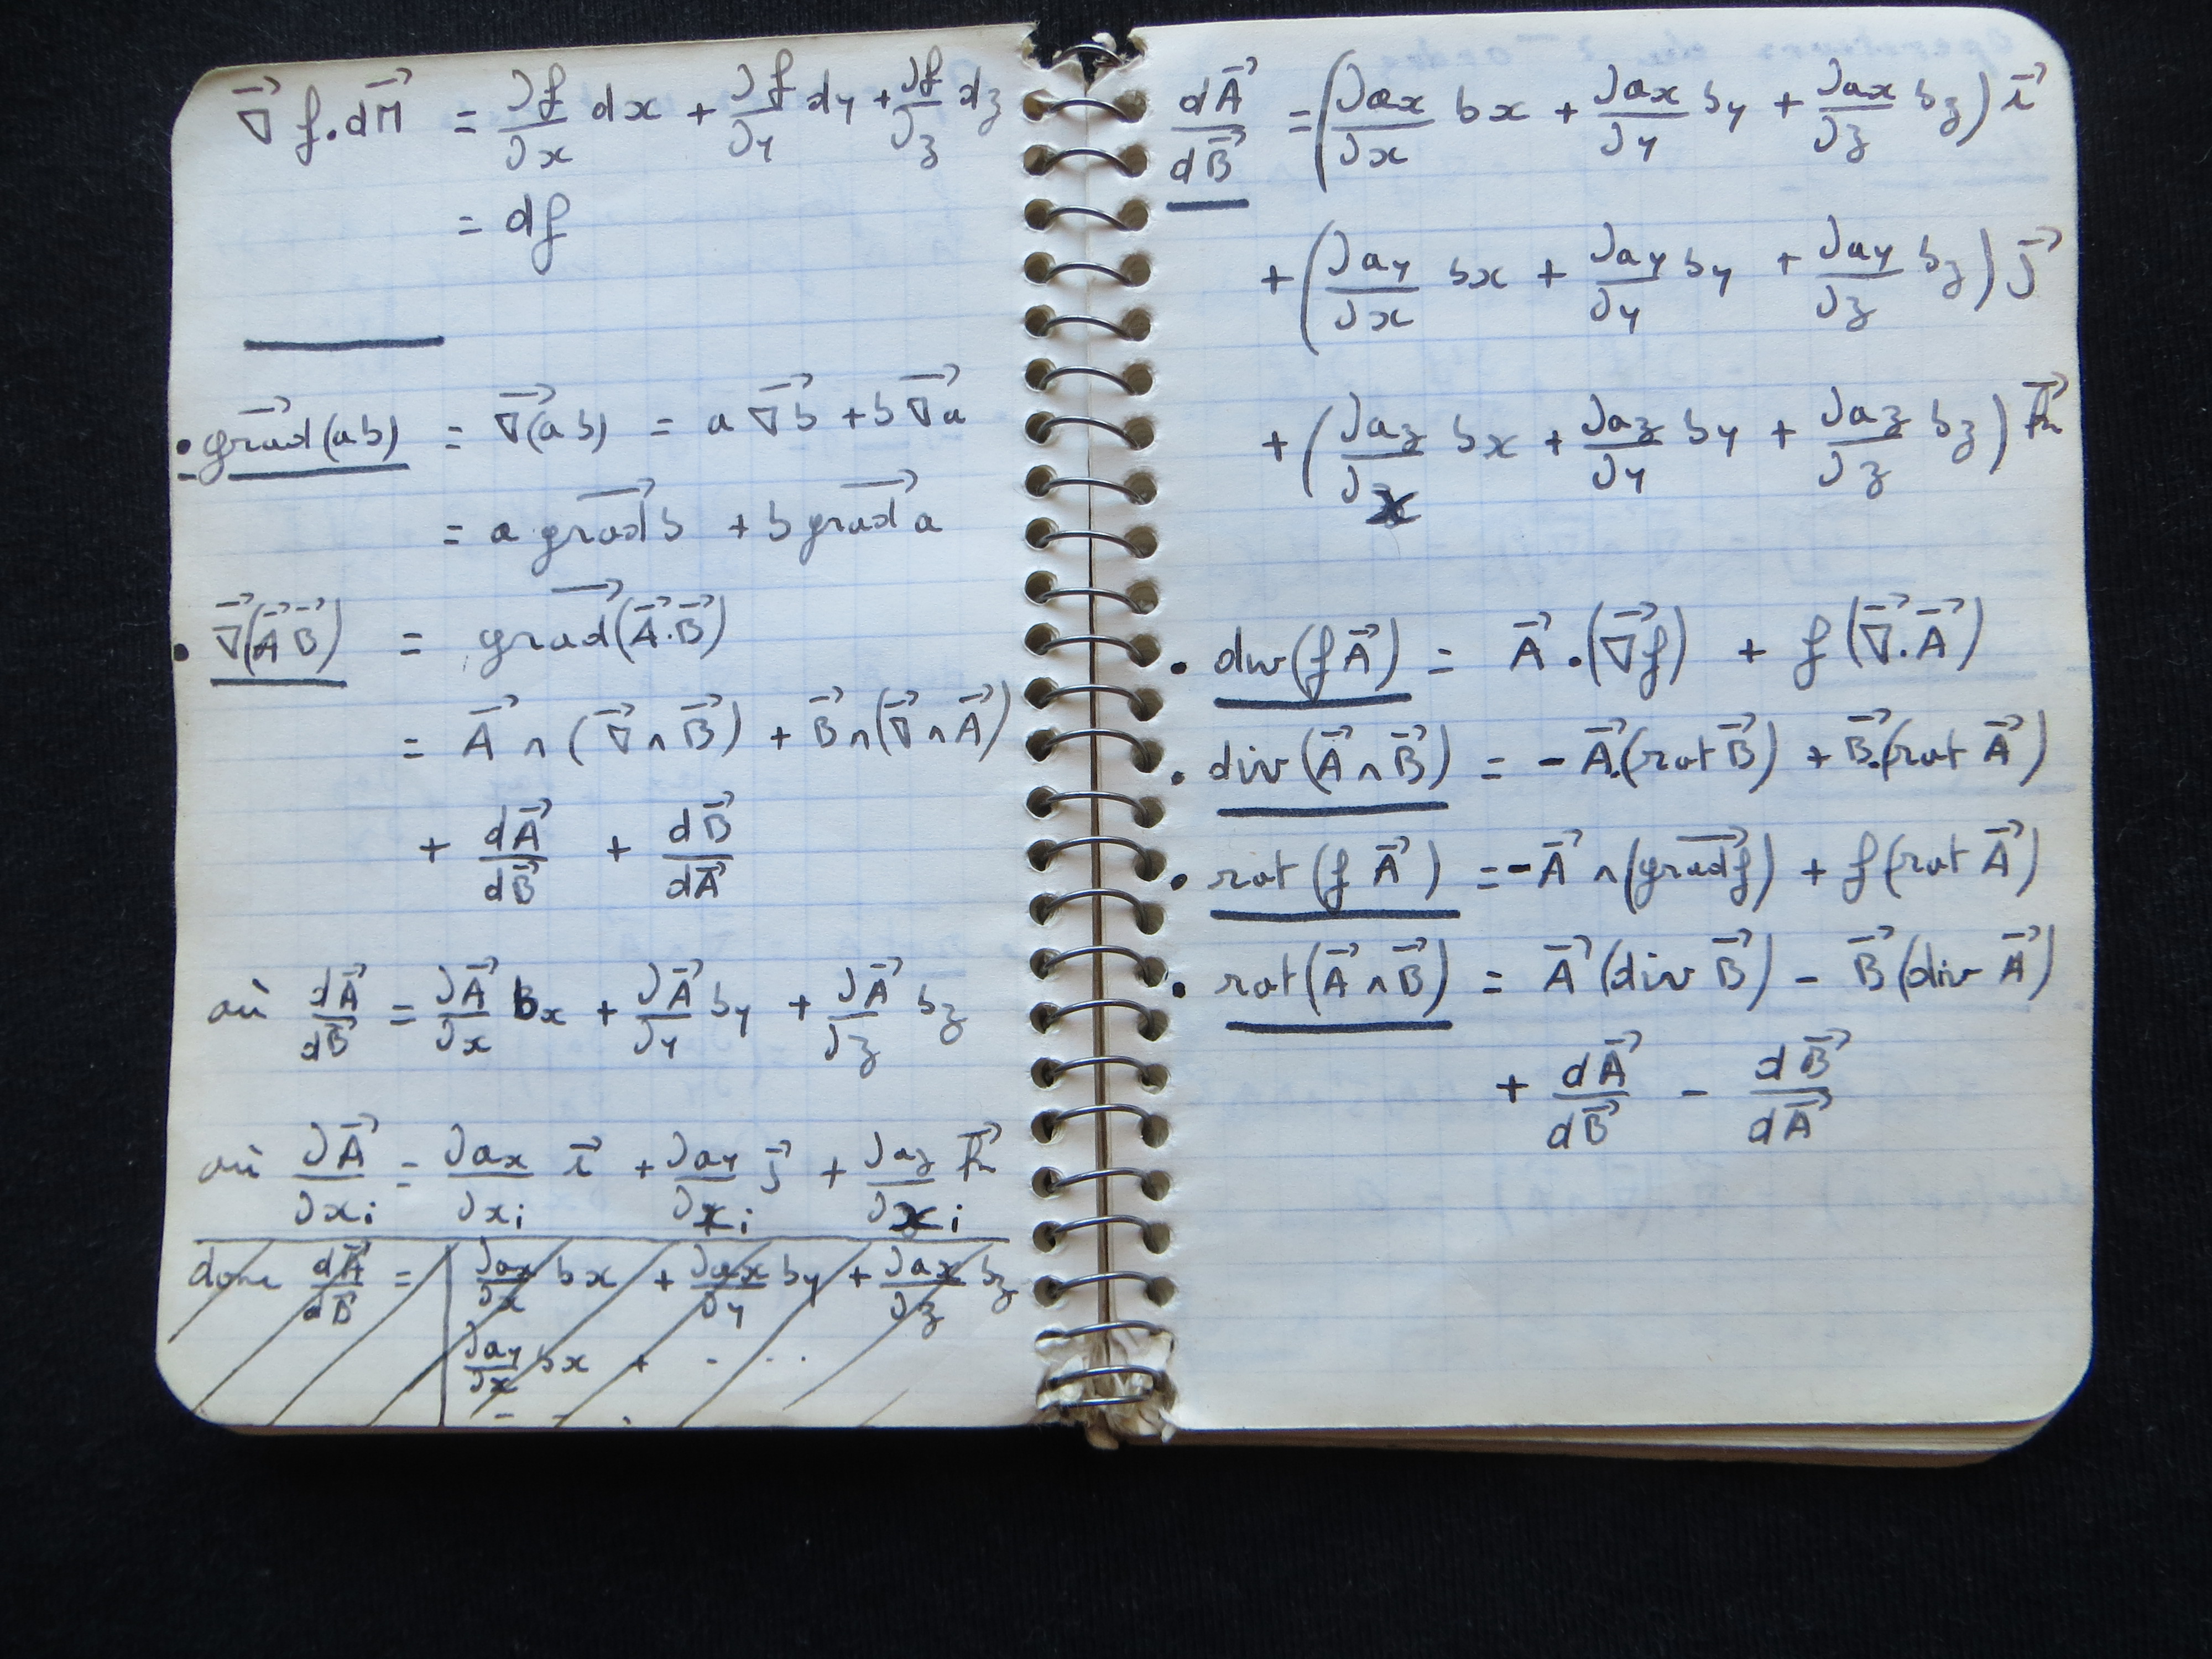 ∇⃗ f · dM⃗ = ∂f/∂x dx + ∂f/∂y dy + ∂f/∂z dz
= df
• grad⃗(ab) = ∇⃗(ab) = a ∇⃗b + b ∇⃗a
= a grad⃗ b + b grad⃗ a
• ∇⃗(A⃗ B⃗) = grad⃗(A⃗·B⃗)
= A⃗ ∧ (∇⃗ ∧ B⃗) + B⃗ ∧ (∇⃗ ∧ A⃗)
+ dA⃗/dB⃗ + dB⃗/dA⃗
où dA⃗/dB⃗ = ∂A⃗/∂x bx + ∂A⃗/∂y by + ∂A⃗/∂z bz
où ∂A⃗/∂xi = ∂ax/∂xi i⃗ + ∂ay/∂xi j⃗ + ∂az/∂xi k⃗
donc dA⃗/dB⃗ = | ∂ax/∂x bx + ∂ax/∂y by + ∂ax/∂z bz
∂ay/∂x bx + - ...
dA⃗/dB⃗ = (∂ax/∂x bx + ∂ax/∂y by + ∂ax/∂z bz) i⃗
+ (∂ay/∂x bx + ∂ay/∂y by + ∂ay/∂z bz) j⃗
+ (∂az/∂x bx + ∂az/∂y by + ∂az/∂z bz) k⃗
• div(f A⃗) = A⃗ · (∇⃗f) + f (∇⃗·A⃗)
• div(A⃗ ∧ B⃗) = - A⃗·(rot B⃗) + B⃗·(rot A⃗)
• rot(f A⃗) = - A⃗ ∧ (grad⃗ f) + f (rot A⃗)
• rot(A⃗ ∧ B⃗) = A⃗ (div B⃗) - B⃗ (div A⃗)
+ dA⃗/dB⃗ - dB⃗/dA⃗